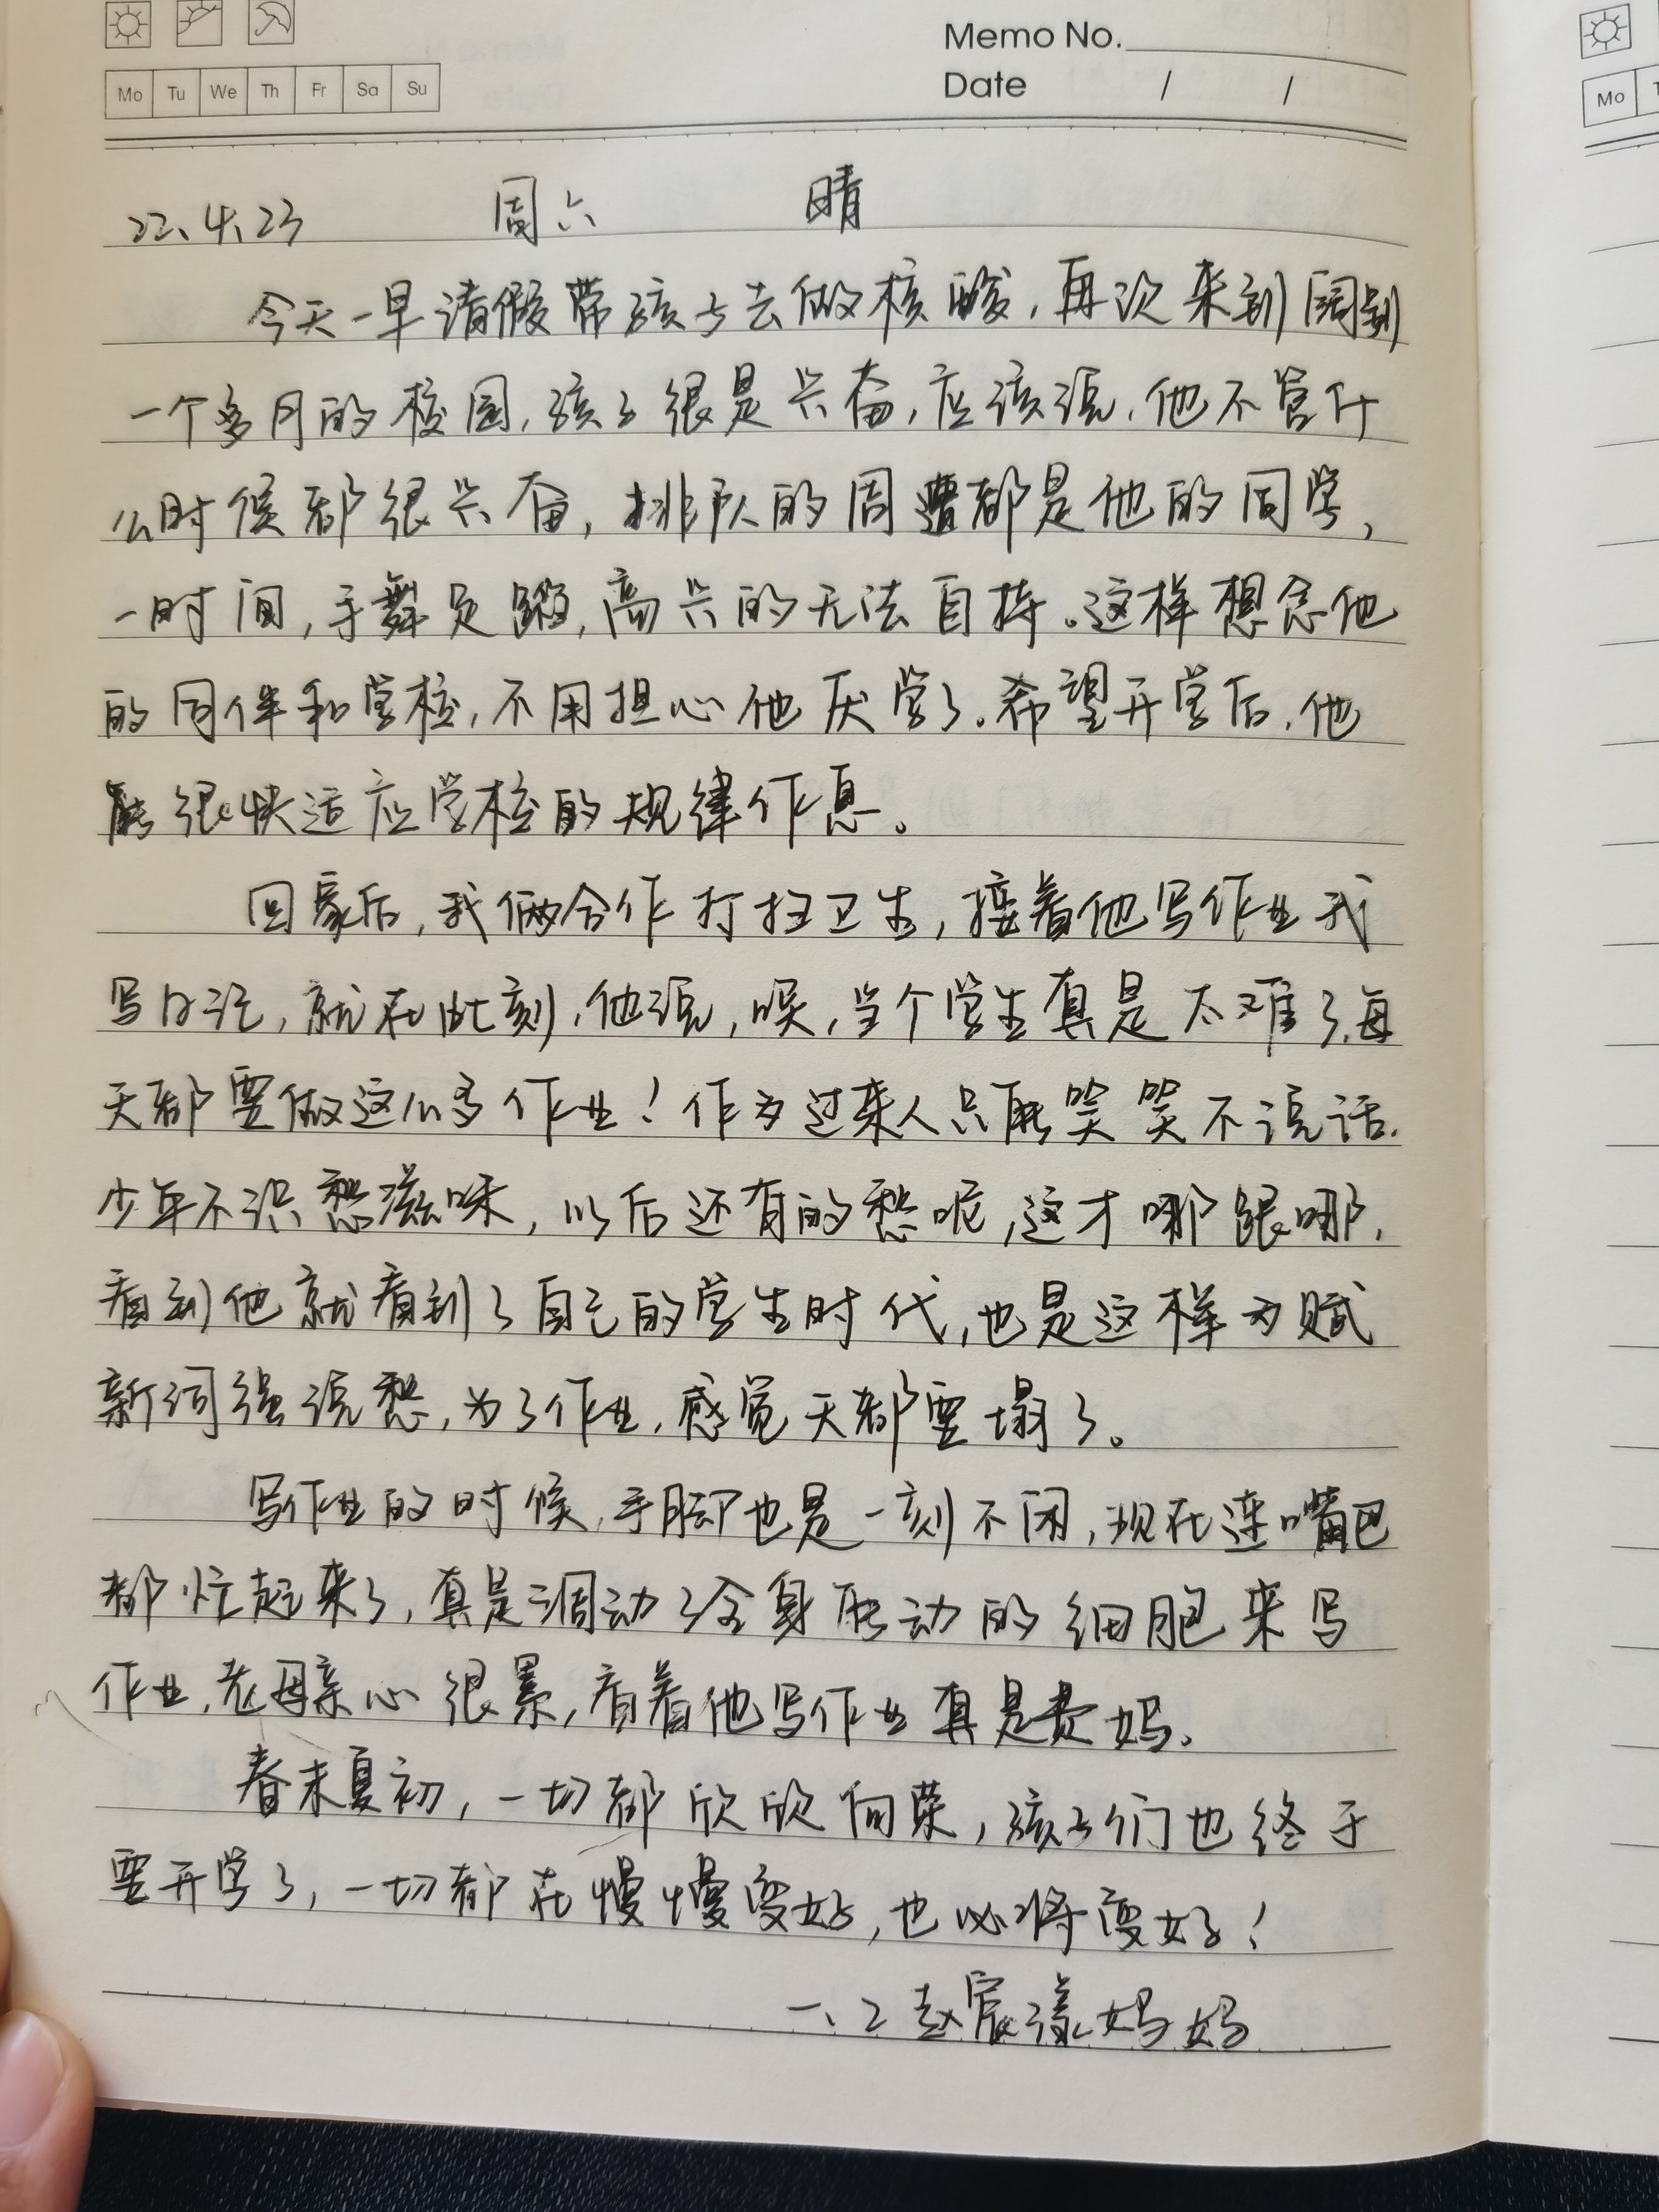 Memo No.
Date / /
Mo Tu We Th Fr Sa Su
Mo
22、4、23 周六 晴
今天一早请假带孩子去做核酸，再次来到阔别
一个多月的校园，孩子很是兴奋，应该说，他不管什
么时候都很兴奋，排队的周遭都是他的同学，
一时间，手舞足蹈，高兴的无法自持。这样想念他
的同伴和学校，不用担心他厌学了。希望开学后，他
能很快适应学校的规律作息。
回家后，我俩合作打扫卫生，接着他写作业我
写日记，就在此刻，他说，唉，当个学生真是太难了，每
天都要做这么多作业！作为过来人只能笑笑不说话.
少年不识愁滋味，以后还有的愁呢，这才哪跟哪，
看到他就看到了自己的学生时代，也是这样为赋
新词强说愁，为了作业，感觉天都要塌了。
写作业的时候，手脚也是一刻不闲，现在连嘴巴
都忙起来了，真是调动了全身能动的细胞来写
作业，老母亲心很累，看着他写作业真是费妈。
春末夏初，一切都欣欣向荣，孩子们也终于
要开学了，一切都在慢慢变好，也必将变好！
一、2 赵宸漾妈妈